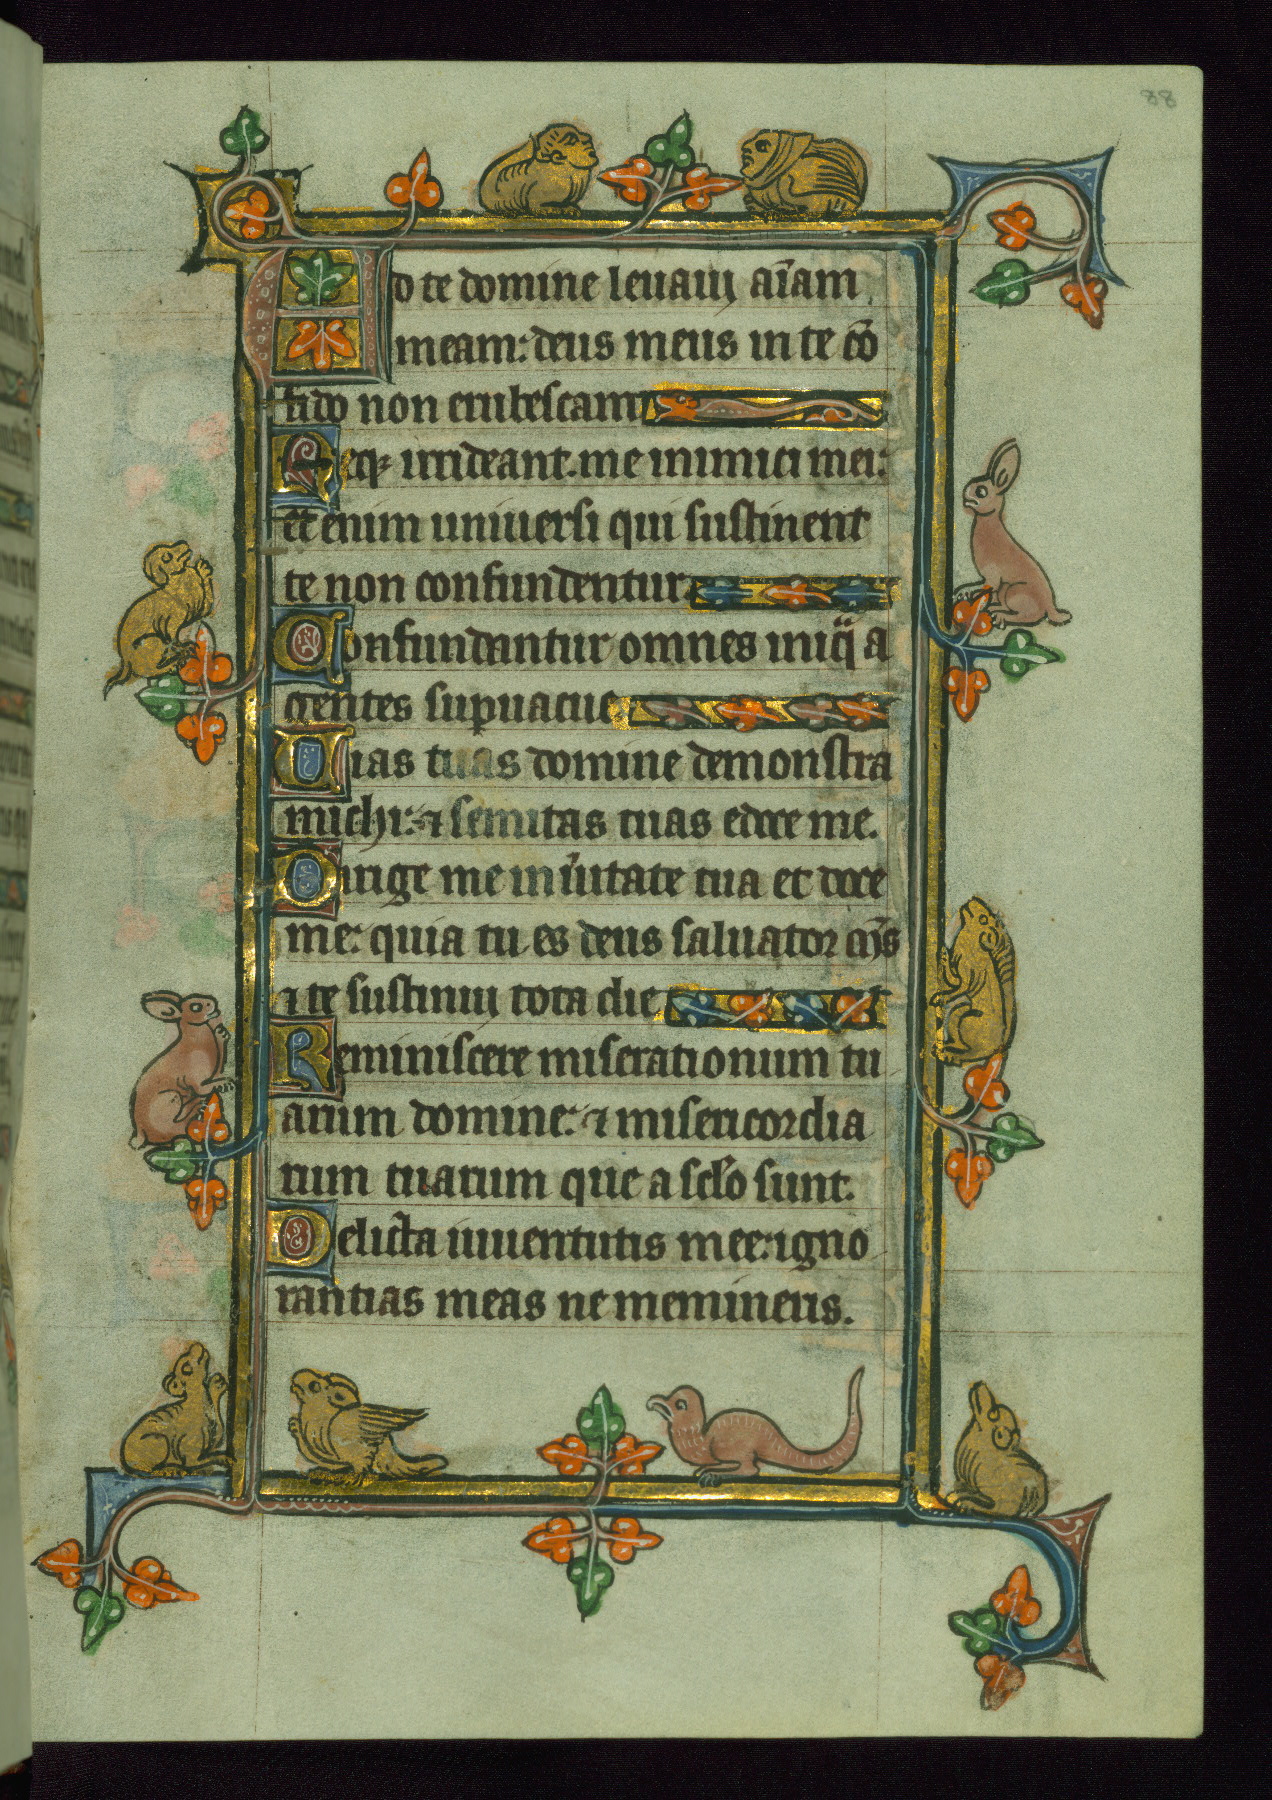 88
Ad te domine levavi aīam
meam: deus meus in te cō
fido non erubescam
Neqꝫ irrideant me inimici mei:
et enim universi qui sustinent
te non confundentur
Confundantur omnes iniqͣ a
gentes supvacue
Vias tuas domine demonstra
michi: ⁊ semitas tuas edoce me.
Dirige me in v̄itate tua et doce
me: quia tu es deus salvator mꝰs
⁊ te sustinui tota die
Reminiscere miserationum tu
arum domine: ⁊ misericordia
rum tuarum que a sclo sunt.
Delicta iuventutis mee: igno
rantias meas ne memineris.